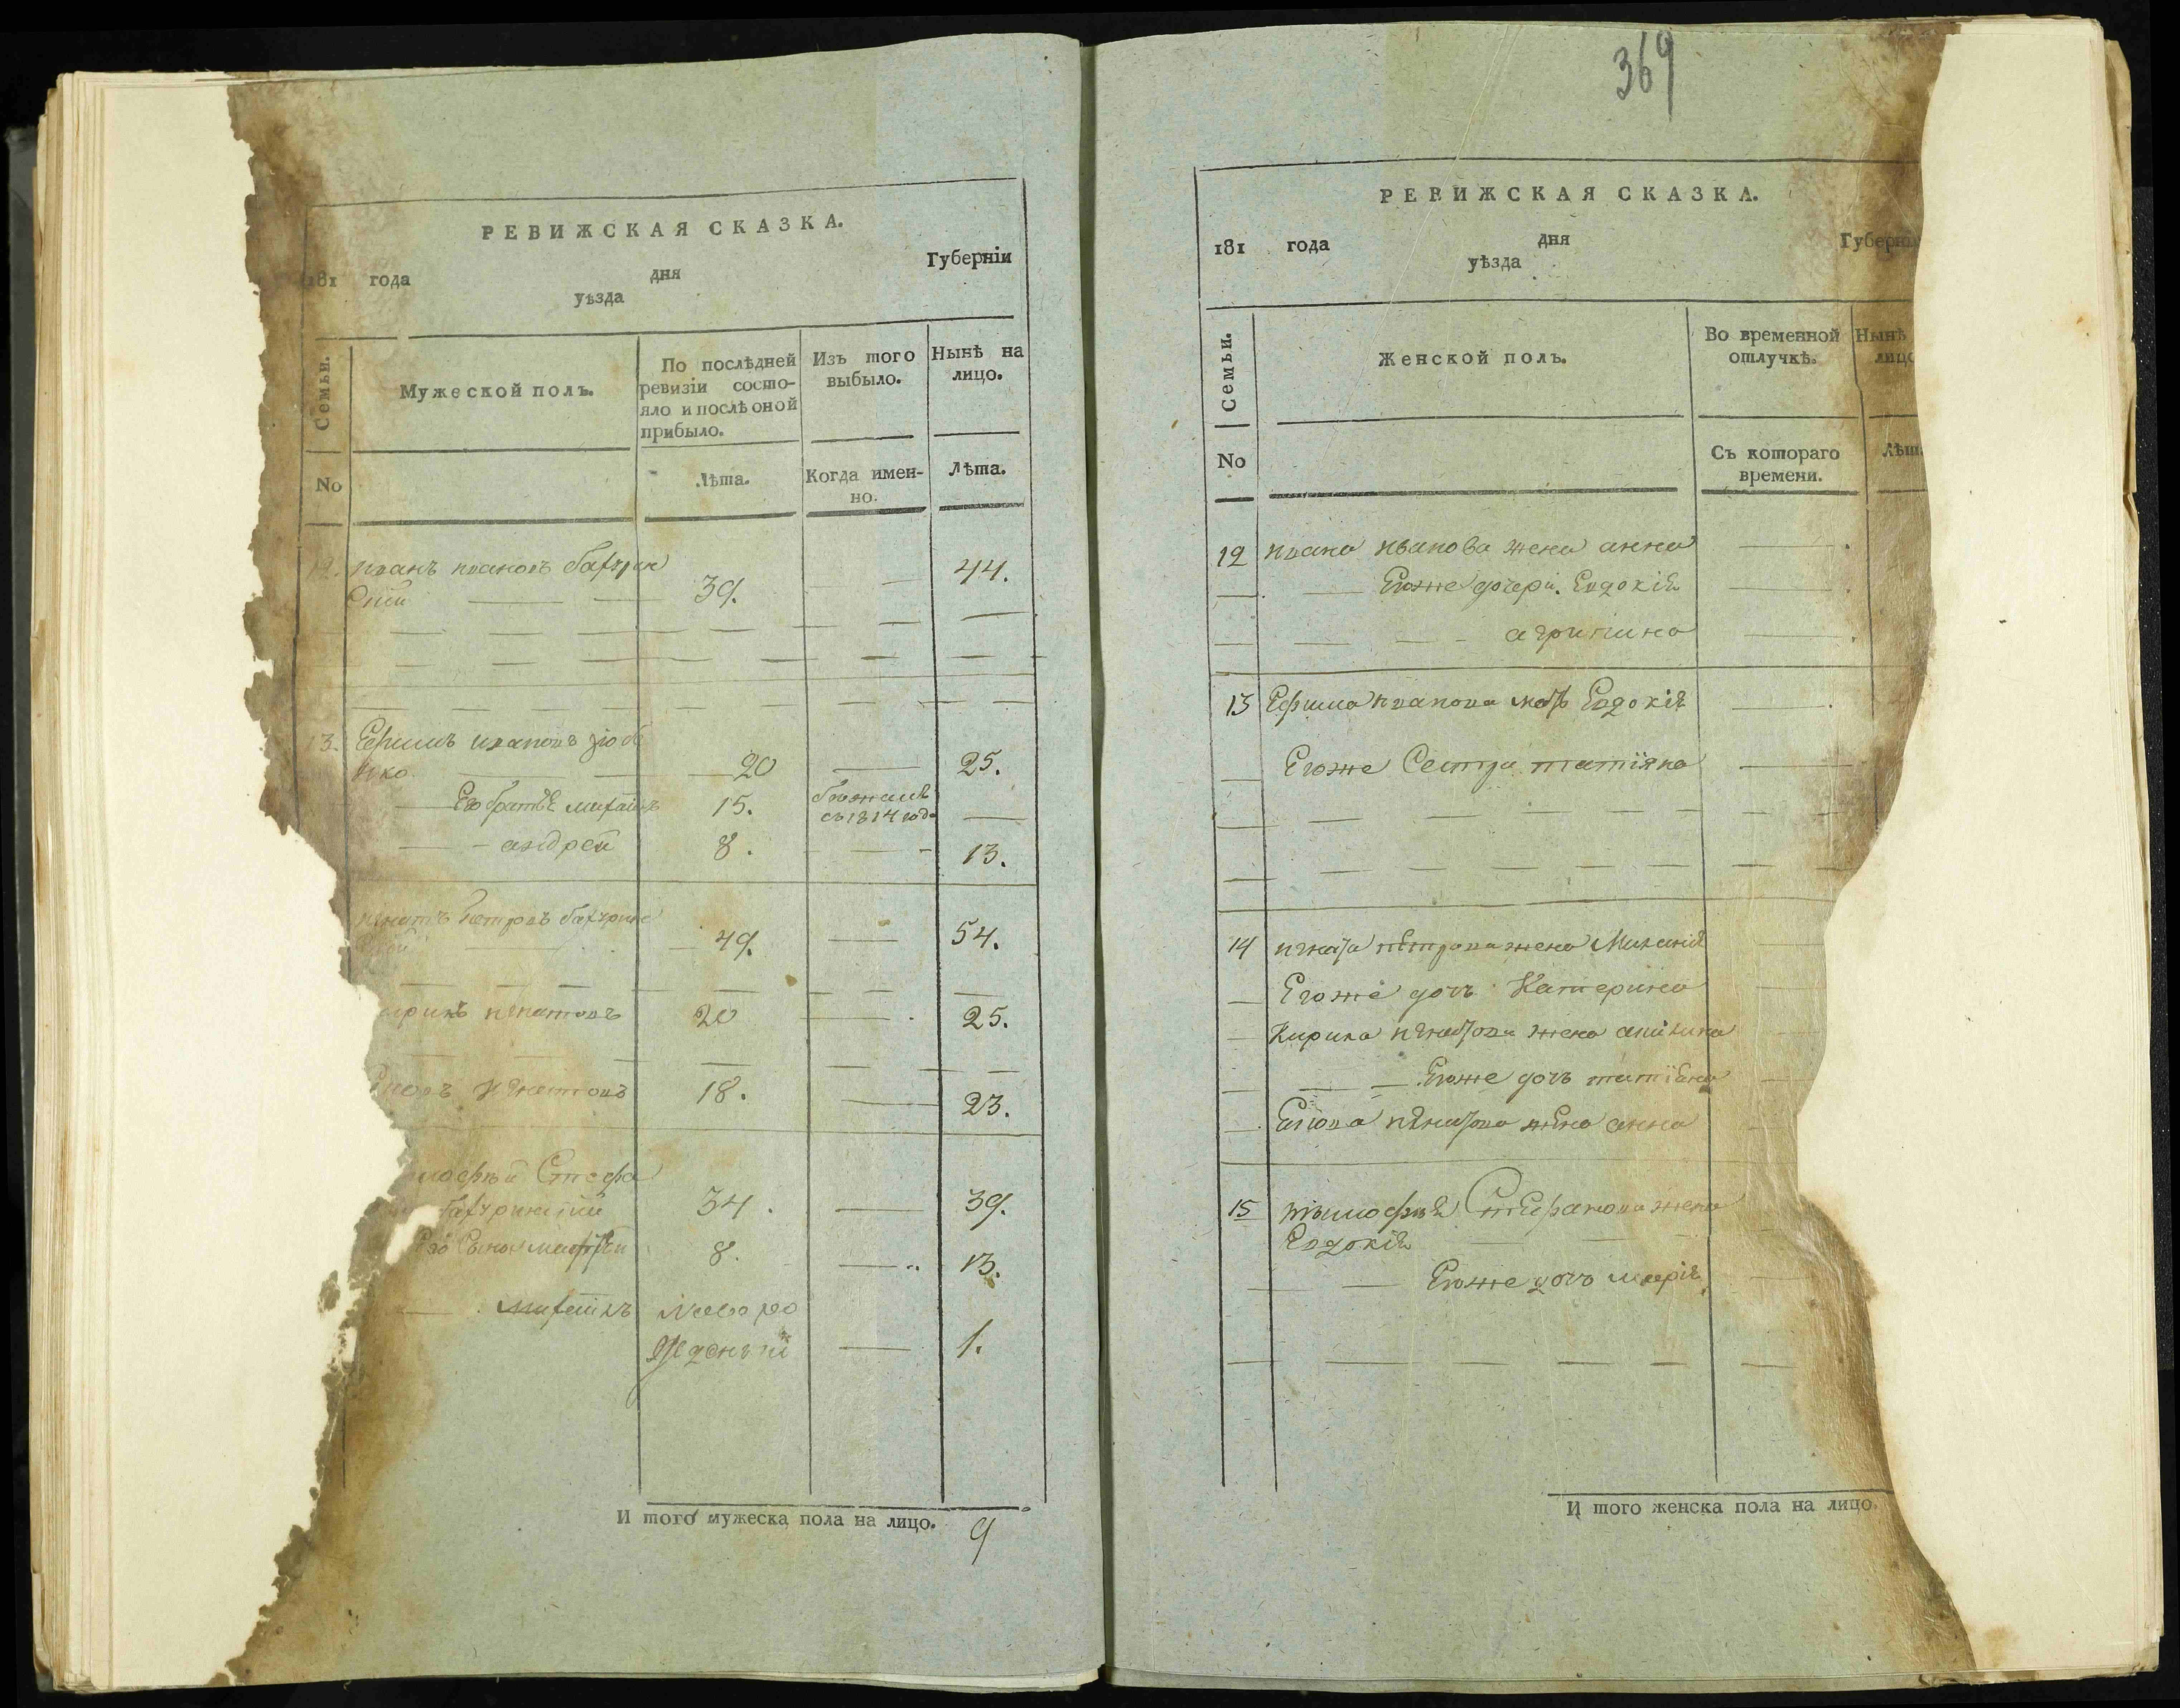 РЕВИЖСКАЯ СКАЗКА.
181 года дня Губерніи
уѣзда
Семьи.
Мужеской полъ.
По послѣдней ревизіи состо-
яло и послѣ оной
прибыло.
Изъ того
выбыло.
Нынѣ на
лицо.
No
Лѣта.
Когда имен-
но.
Лѣта.
12. иванъ ивановъ 44.
39.
13. Ефимъ ивановъ
20 25.
Его братья михаилъ 15. бежалъ
съ 1814 года
андрей 8. 13.
игнатъ петровъ
49. 54.
игнатовъ 20 25.
игнатовъ 18. 23.
Стефа
34. 39.
Его Сыновья 8. 13.
Михаилъ Ново ро
жденный 1.
И того мужеска пола на лицо. 9
369
РЕВИЖСКАЯ СКАЗКА.
181 года дня Губерні
уѣзда
Семьи.
Женской полъ.
Во временной
отлучкѣ.
Нынѣ
лицо
No
Съ котораго
времени.
Лѣта
12 ивана иванова жена анна
Егоже дочери. Евдокія
агрипина
13 Ефима иванова мать Евдокія
Егоже Сестра татіяна
14 игната петрова жена Миланія
Егоже дочь Катерина
Кирила игнатова жена
Егоже дочь татіяна
игнатова жена анна
15 тимофея Стефанова жена
Евдокія
Егоже дочь марія
И того женска пола на лицо.